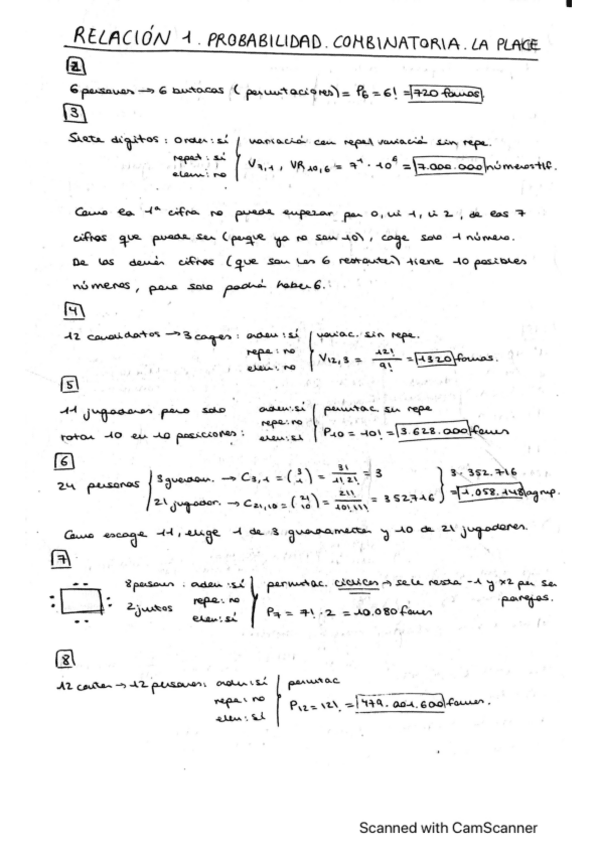 RELACIÓN 1. PROBABILIDAD. COMBINATORIA. LA PLACE
2
6 personas → 6 butacas (permutaciones) = P6 = 6! = 720 formas
3
Siete dígitos: orden: sí variación con repe variació sin repe.
repet: sí V7,1 , VR10,6 = 7¹ · 10⁶ = 7.000.000 números tlf.
elem: no
Como la 1ª cifra no puede empezar por 0, ni 1, ni 2, de las 7
cifras que puede ser (porque ya no son 10), coge solo 1 número.
De las demás cifras (que son las 6 restantes) tiene 10 posibles
números, pero solo podrá haber 6.
4
12 candidatos → 3 cages: orden: sí variac. sin repe.
repe: no V12,3 = 12!/9! = 1320 formas.
elem: no
5
11 jugadores pero solo orden: sí permutac. sin repe
repe: no
rotar 10 en 10 posiciones: elem: sí P10 = 10! = 3.628.000 formas
6
24 personas 3 guardam. → C3,1 = (3 1) = 3!/1!2! = 3 3 · 352.716
21 jugador. → C21,10 = (21 10) = 21!/10!11! = 352.716 = 1.058.148 agrup.
Como escoge 11, elige 1 de 3 guardameta y 10 de 21 jugadores.
7
8 person : orden: sí permutac. cíclicas → se le resta -1 y x2 por ser
2 juntos repe: no parejas.
elem: sí P7 = 7! · 2 = 10.080 formas
8
12 cartas → 12 personas: orden: sí permutac
repe: no P12 = 12! = 479.001.600 formas.
elem: sí
Scanned with CamScanner